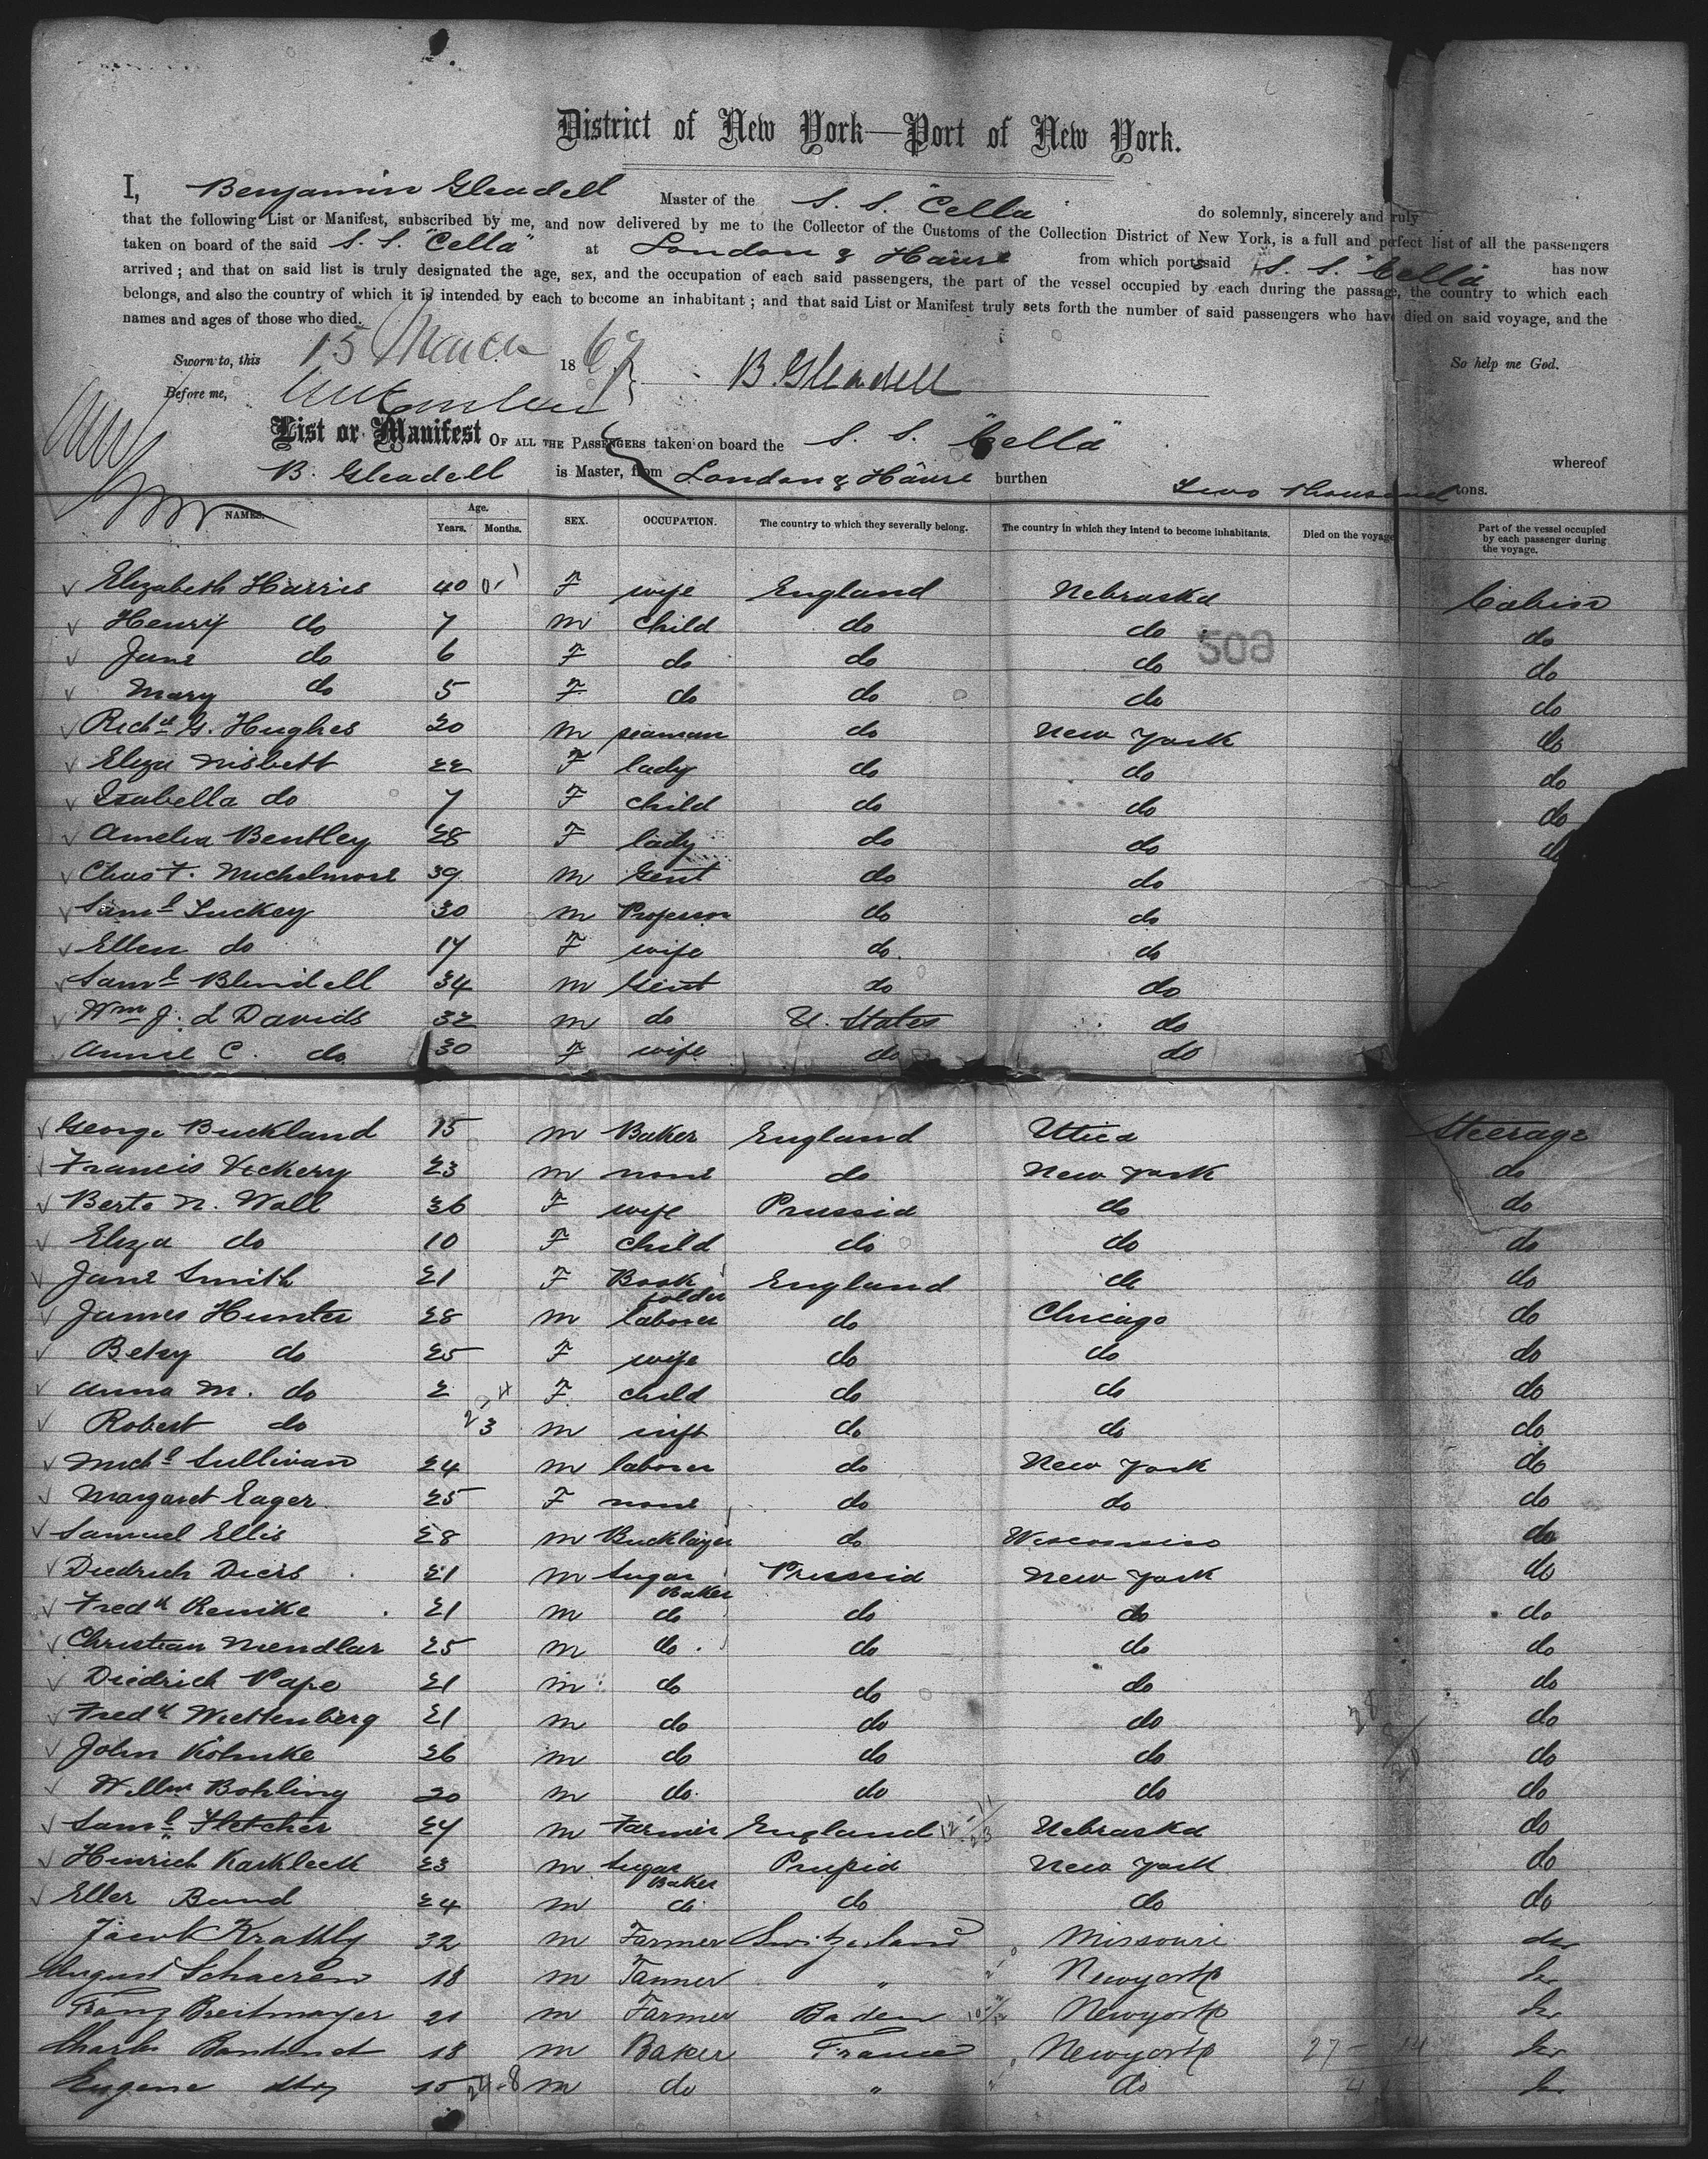 District of New York—Port of New York.
I, Benjamin Gleadell Master of the S. S. "Cella" do solemnly, sincerely and truly
that the following List or Manifest, subscribed by me, and now delivered by me to the Collector of the Customs of the Collection District of New York, is a full and perfect list of all the passengers
taken on board of the said S. S. "Cella" at London & Havre from which port said S. S. Cella has now
arrived; and that on said list is truly designated the age, sex, and the occupation of each said passengers, the part of the vessel occupied by each during the passage, the country to which each
belongs, and also the country of which it is intended by each to become an inhabitant; and that said List or Manifest truly sets forth the number of said passengers who have died on said voyage, and the
names and ages of those who died.
Sworn to, this 15 March 1869 B. Gleadell So help me God.
Before me,
List or Manifest OF ALL THE PASSENGERS taken on board the S. S. "Cella" whereof
B. Gleadell is Master, from London & Havre burthen Two Thousand tons.
NAMES. Age. Years. Months. SEX. OCCUPATION. The country to which they severally belong. The country in which they intend to become inhabitants. Died on the voyage Part of the vessel occupied by each passenger during the voyage.
Elizabeth Harris 40 F wife England Nebraska Cabin
Henry do 7 m child do do do
508
Jane do 6 F do do do do
Mary do 5 F do do do do
Richd G. Hughes 20 m seaman do New York do
Eliza Nisbett 22 F lady do do do
Isabella do 7 F child do do do
Amelia Bentley 28 F lady do do do
Chas F. Michelmore 39 m Gent do do
Saml Luckey 30 m Professor do do
Ellen do 17 F wife do do
Saml Blendell 34 m Gent do do
Wm J. L Davids 32 m do U. States do
Annie C. do 30 F wife do do
George Buckland 15 m Baker England Utica Steerage
Francis Vickery 23 m none do New York do
Berta N. Wall 36 F wife Prussia do do
Eliza do 10 F child do do do
Jane Smith 21 F Book folder England do do
James Hunter 28 m laborer do Chicago do
Betsy do 25 F wife do do do
Anna M. do 2 F child do do do
Robert do 3 m inft do do do
Michl Sullivan 24 m laborer do New York do
Margaret Eager 25 F none do do do
Samuel Ellis 28 m Bricklayer do Wisconsin do
Diedrich Diers 21 m Sugar Baker Prussia New York do
Fredk Renike 21 m do do do do
Christian Mendlar 25 m do do do do
Diedrich Pape 21 m do do do do
Fredk Wettenberg 21 m do do do do
John Kohnke 26 m do do do do
Willm Bohling 20 m do do do do
Saml Fletcher 24 m Farmer England Nebraska do
Hinrich Karkleck 23 m Sugar Baker Prussia New York do
Eller Bund 24 m do do do do
Jacob Krathly 32 m Farmer Switzerland Missouri do
August Schaeren 18 m Tanner " Newyork do
Franz Breitmayer 21 m Farmer Baden Newyork do
Charles 18 m Baker France Newyork 27 - 14 do
Eugene 15 24-8 m do " do 4 do